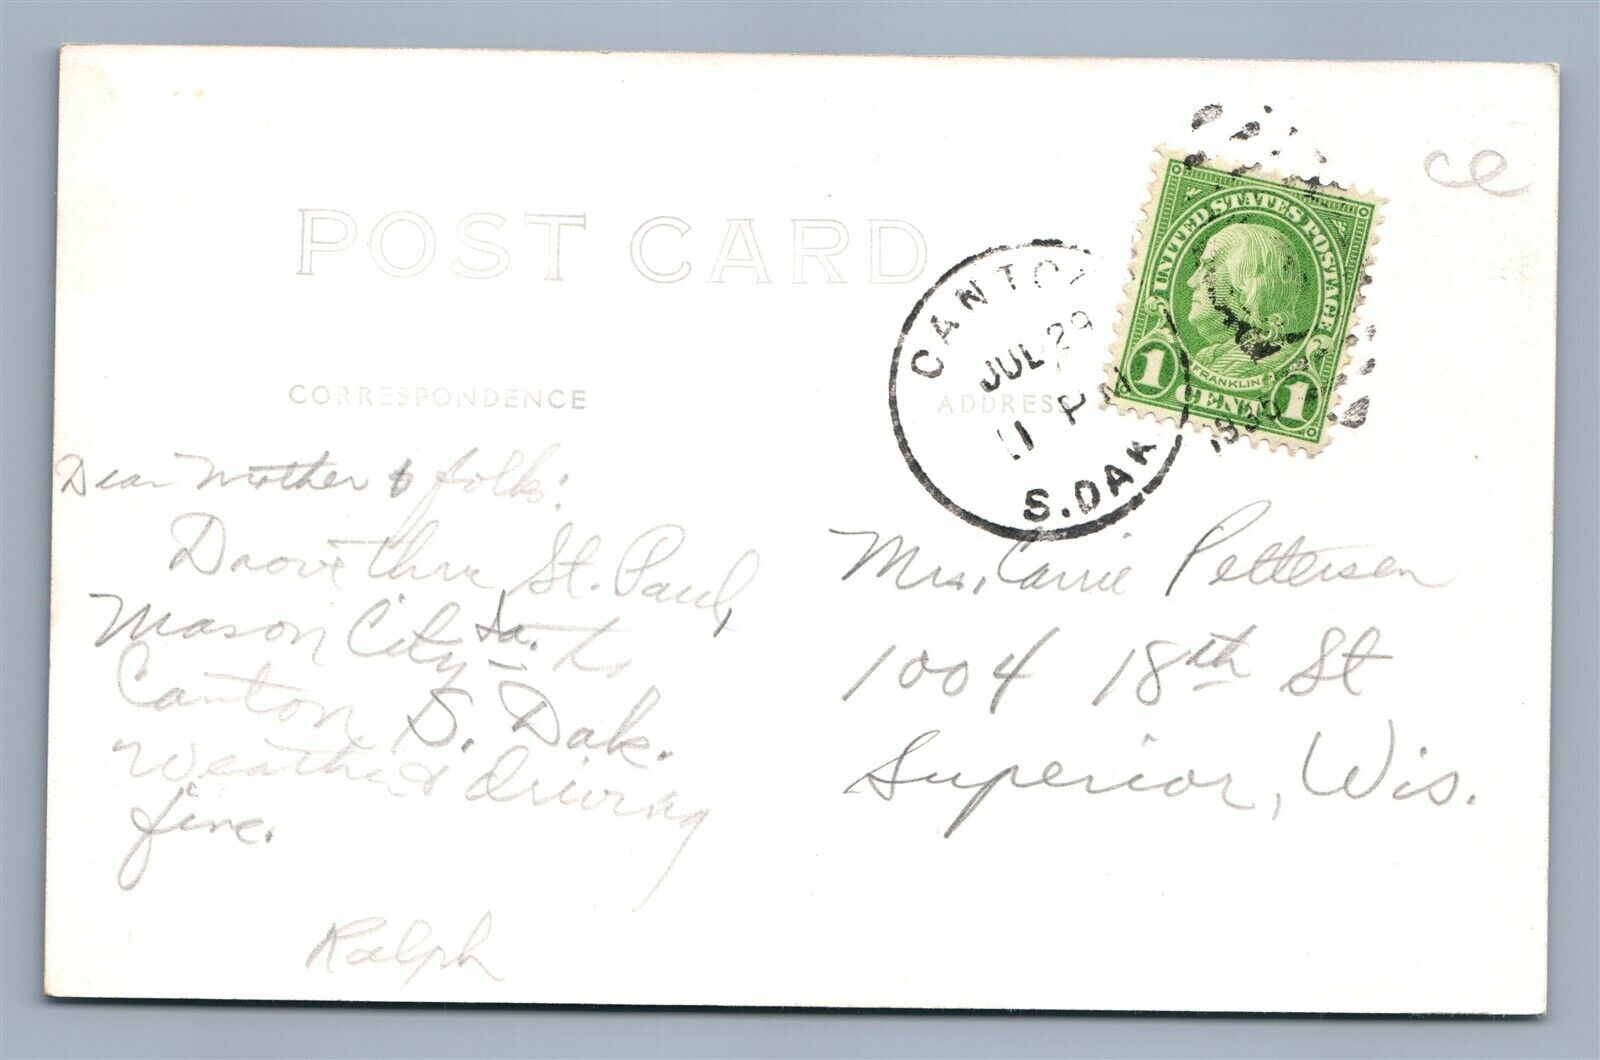 POST CARD
CORRESPONDENCE
ADDRESS
CANTO
JUL 29
11 PM
S.DAK
UNITED STATES POSTAGE
FRANKLIN
1 CENT 1
ce
Dear Mother & folks:
Drove thru St. Paul,
Mason City Ia. to
Canton S. Dak.
Weather & driving
fine.
Ralph
Mrs. Carrie Pettersen
1004 18th St
Superior, Wis.